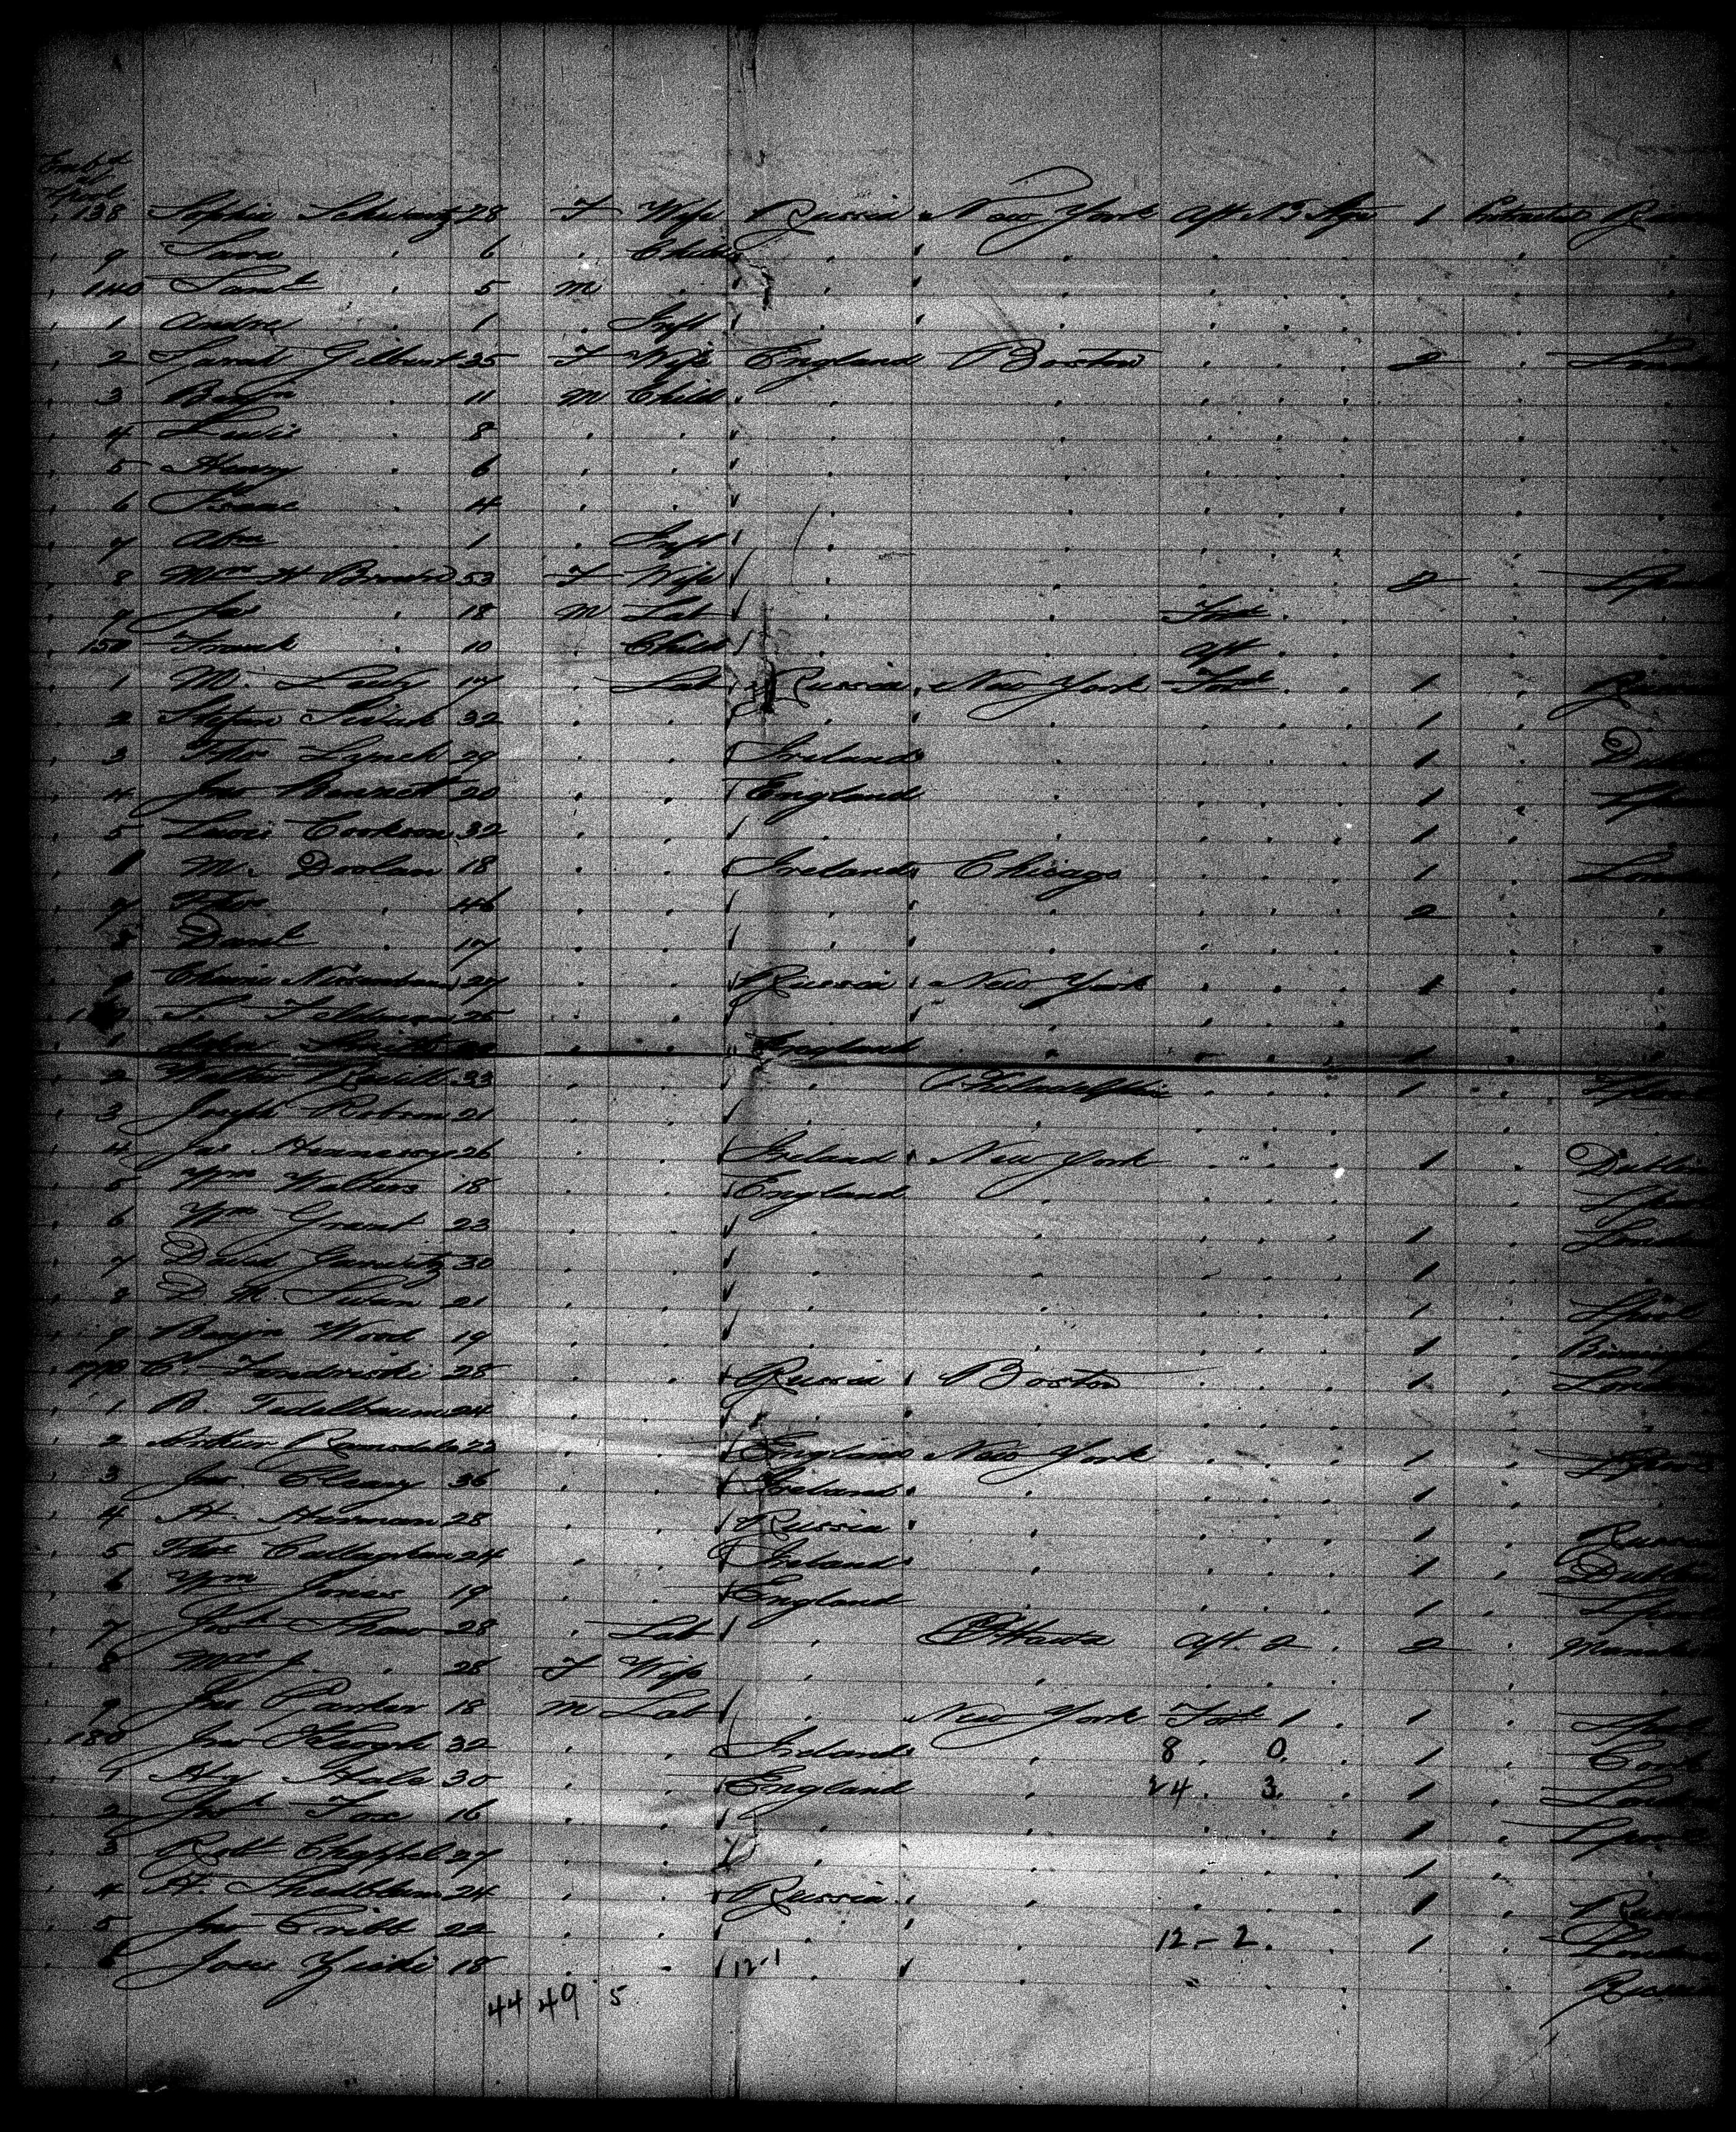 Emb'd at L'pool
138 Sophia Schwartz 28 F Wife Russia New York Aft No 3 Stge 1 Protracted Russia
9 Sara " 6 " Child " " " " "
140 Saml " 5 M " " " " " "
1 Andre " 1 " Inft " " " "
2 Sarah Gilbert 35 F Wife England Boston " " " 2 " London
3 Benjn " 11 M Child " " " " "
4 Lewis " 8 " " " " " "
5 Henry " 6 " " " " " "
6 Isaac " 4 " " " " " "
7 Abm " 1 " Inft " " " "
8 Mrs H Brown 53 F Wife " " " " " 2 " Lpool
9 Jas " 18 M Lab " " Ford " "
150 Frank " 10 " Child " " Aft " "
1 M. Levy 17 " Lab Russia New York Ford " " 1 " Russia
2 Stefan Sivak 32 " " " " " " " 1 "
3 Thos Lynch 29 " " Ireland " " " " 1 " Dublin
4 Jno Bennett 20 " " England " " " " 1 " Lpool
5 Lewis Cookson 32 " " " " " " " 1 "
M. Doolan 18 " " Ireland Chicago " " " 1 " London
7 Thos " 46 " " " " " " " 2 " "
8 Danl " 17 " " " " " " " "
9 Nissenbaum 27 " " Russia New York " " " 1 " "
S. Feldman 25 " " " " " " "
1 John Smith " " England " " " " 1 " "
2 Walter Revill 33 " " " Philadelphia " " " 1 " Lpool
3 Joseph Robson 21 " " " " " " "
4 Jas Hennessy 26 " " Ireland New York " " " 1 " Dublin
5 Wm Walters 18 " " England " " " " " Lpool
6 Wm Grant 23 " " " " " " " 1 " London
7 David Gurwitz 30 " " " " " " " 1 "
8 D. M. Swan 21 " " " " " " " 1 " Lpool
9 Benjn Wood 19 " " " " " " " 1 " Birming
170 C. 28 " " Russia Boston " " " 1 " London
1 B. Tedelbaum 24 " " " " " " "
2 Arthur Ramsdale 22 " " England New York " " " 1 " Lpool
3 Jno. Cleary 36 " " Ireland " " " " 1 "
4 H. Herman 28 " " Russia " " " " 1 " Russia
5 Thos Callaghan 24 " " Ireland " " " " 1 " Dublin
6 Wm Jones 19 " " England " " " " 1 " Lpool
7 Jos Shaw 28 " Lab " Ottawa Aft. 2 " 2 " Manches
8 Mrs J. " 28 F Wife " " " " "
9 Jno Parker 18 M Lab " New York Ford 1 " 1 " Lpool
180 Jno Keough 32 " " Ireland " 8 0 " 1 " Cork
1 Hy Hale 30 " " England " 24 3 " 1 " London
2 Fox 16 " " " " " " " 1 " Lpool
3 Robt Chappel 27 " " " " " " " 1 "
4 H. 24 " " Russia " " " " 1 " Russia
5 Jno Cribb 22 " " " " 12 - 2 " 1 " London
6 18 " " 12-1 " " " " Russia
44 49 5